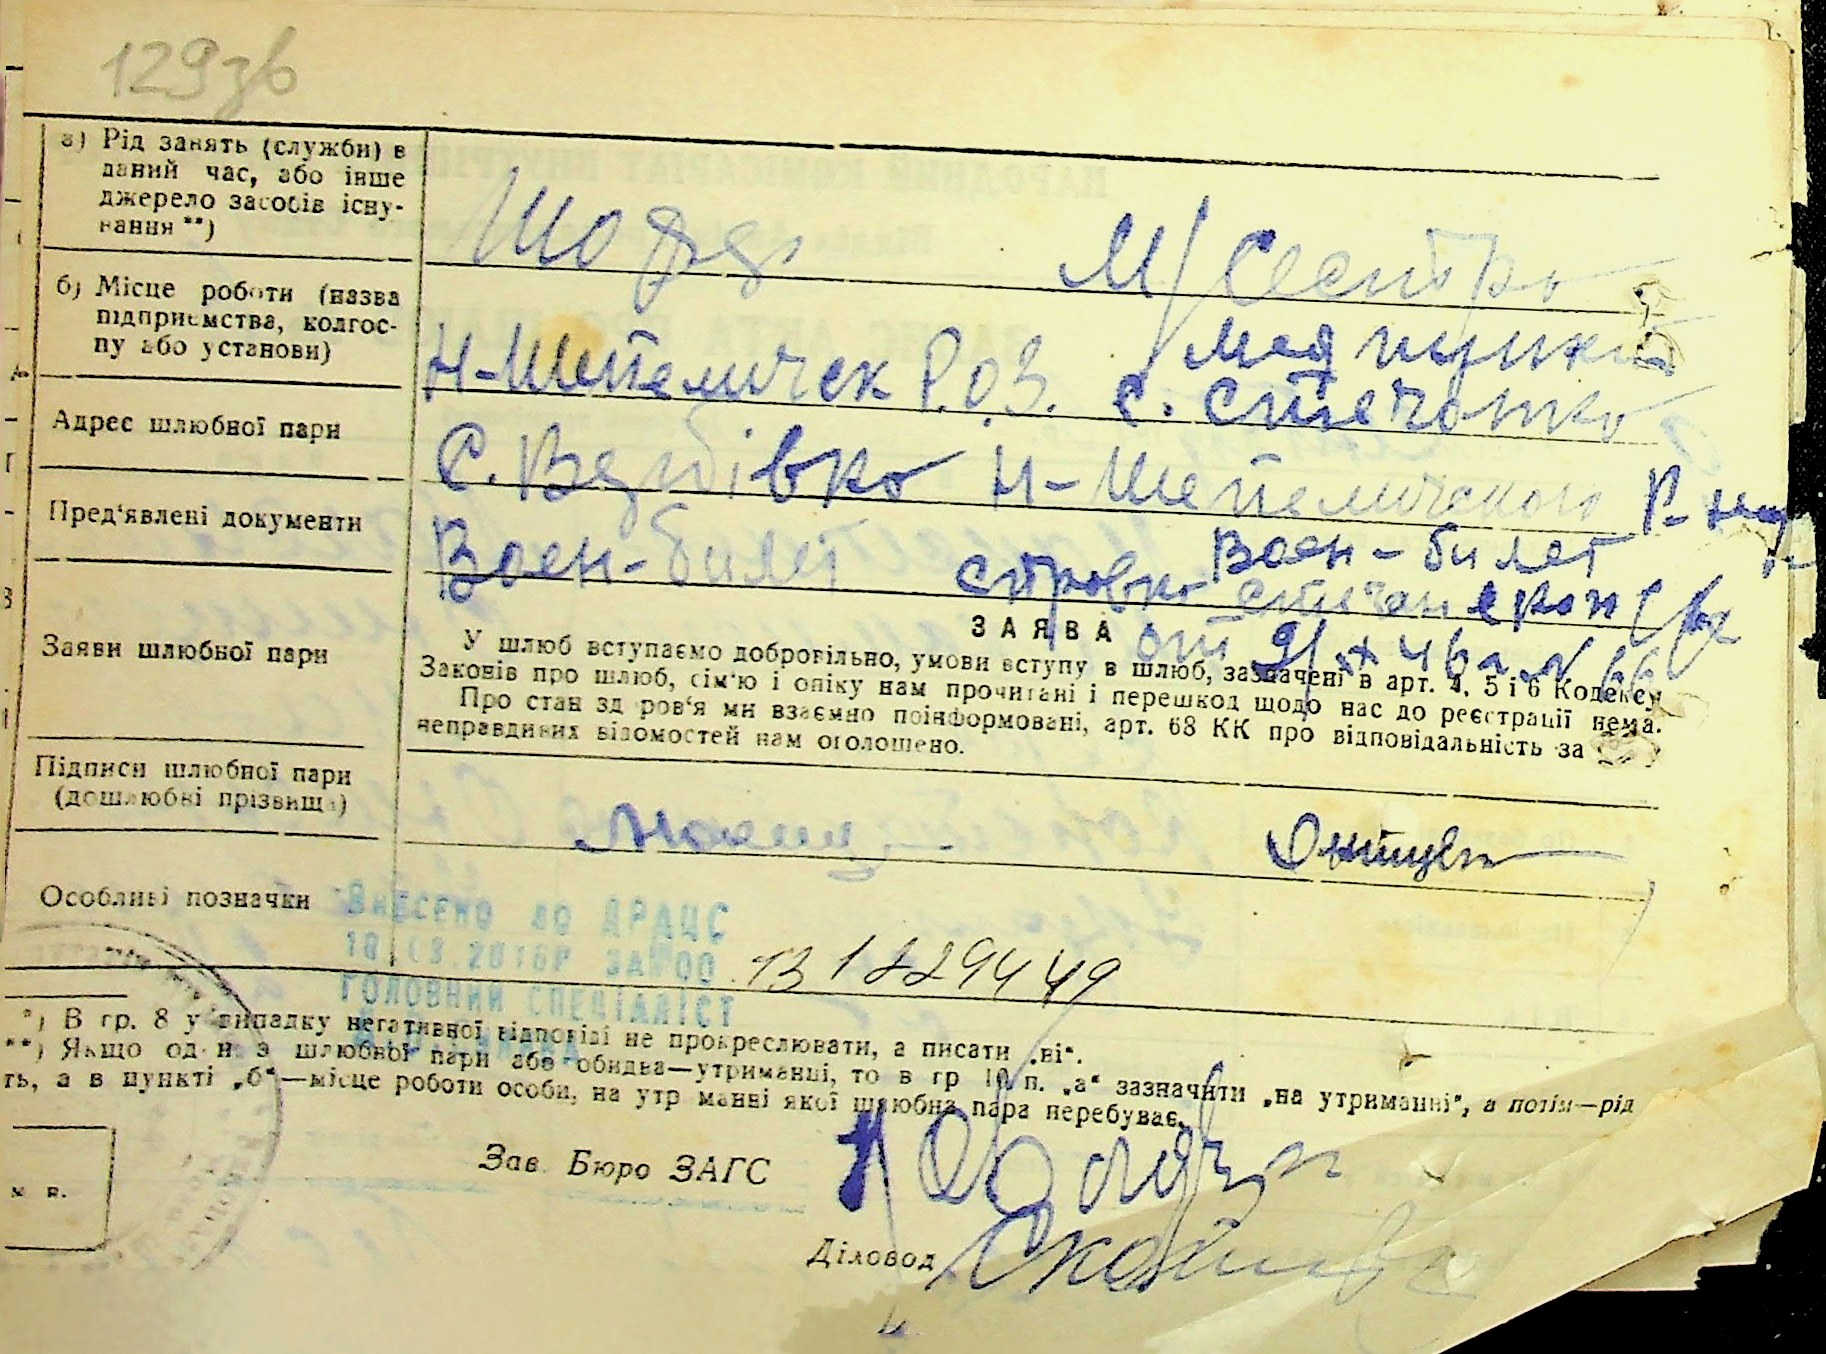 129зв
а) Рід занять (служби) в
даний час, або інше
джерело засобів існу-
вання **)
М/Сестра
б) Місце роботи (назва
підприємства, колгос-
пу або установи)
Н-Шепеличск Р.О.З.
Медпункт
с. Стечанка
Адрес шлюбної пари
С. Вербівка Н-Шепеличского Р-ну
Пред'явлені документи
Воен-билет
Воен-билет
Заяви шлюбної пари
ЗАЯВА
У шлюб вступаємо добровільно, умови вступу в шлюб, зазначені в арт. 4, 5 і 6 Кодексу
Законів про шлюб, сім'ю і опіку нам прочитані і перешкод щодо нас до реєстрації нема.
Про стан здоров'я ми взаємно поінформовані, арт. 68 КК про відповідальність за
неправдивих відомостей нам оголошено.
Підписи шлюбної пари
(дошлюбні прізвища)
Особливі позначки
ВНЕСЕНО до ДРАЦС
ГОЛОВНИЙ СПЕЦІАЛІСТ
*) В гр. 8 у випадку негативної відповіді не прокреслювати, а писати „ні“.
**) Якщо один з шлюбної пари або обидва—утриманці, то в гр 10 п. „а“ зазначити „на утриманні“, а потім—рід
ть, а в пункті „б“—місце роботи особи, на утриманні якої шлюбна пара перебуває.
Зав. Бюро ЗАГС
м. п.
Діловод